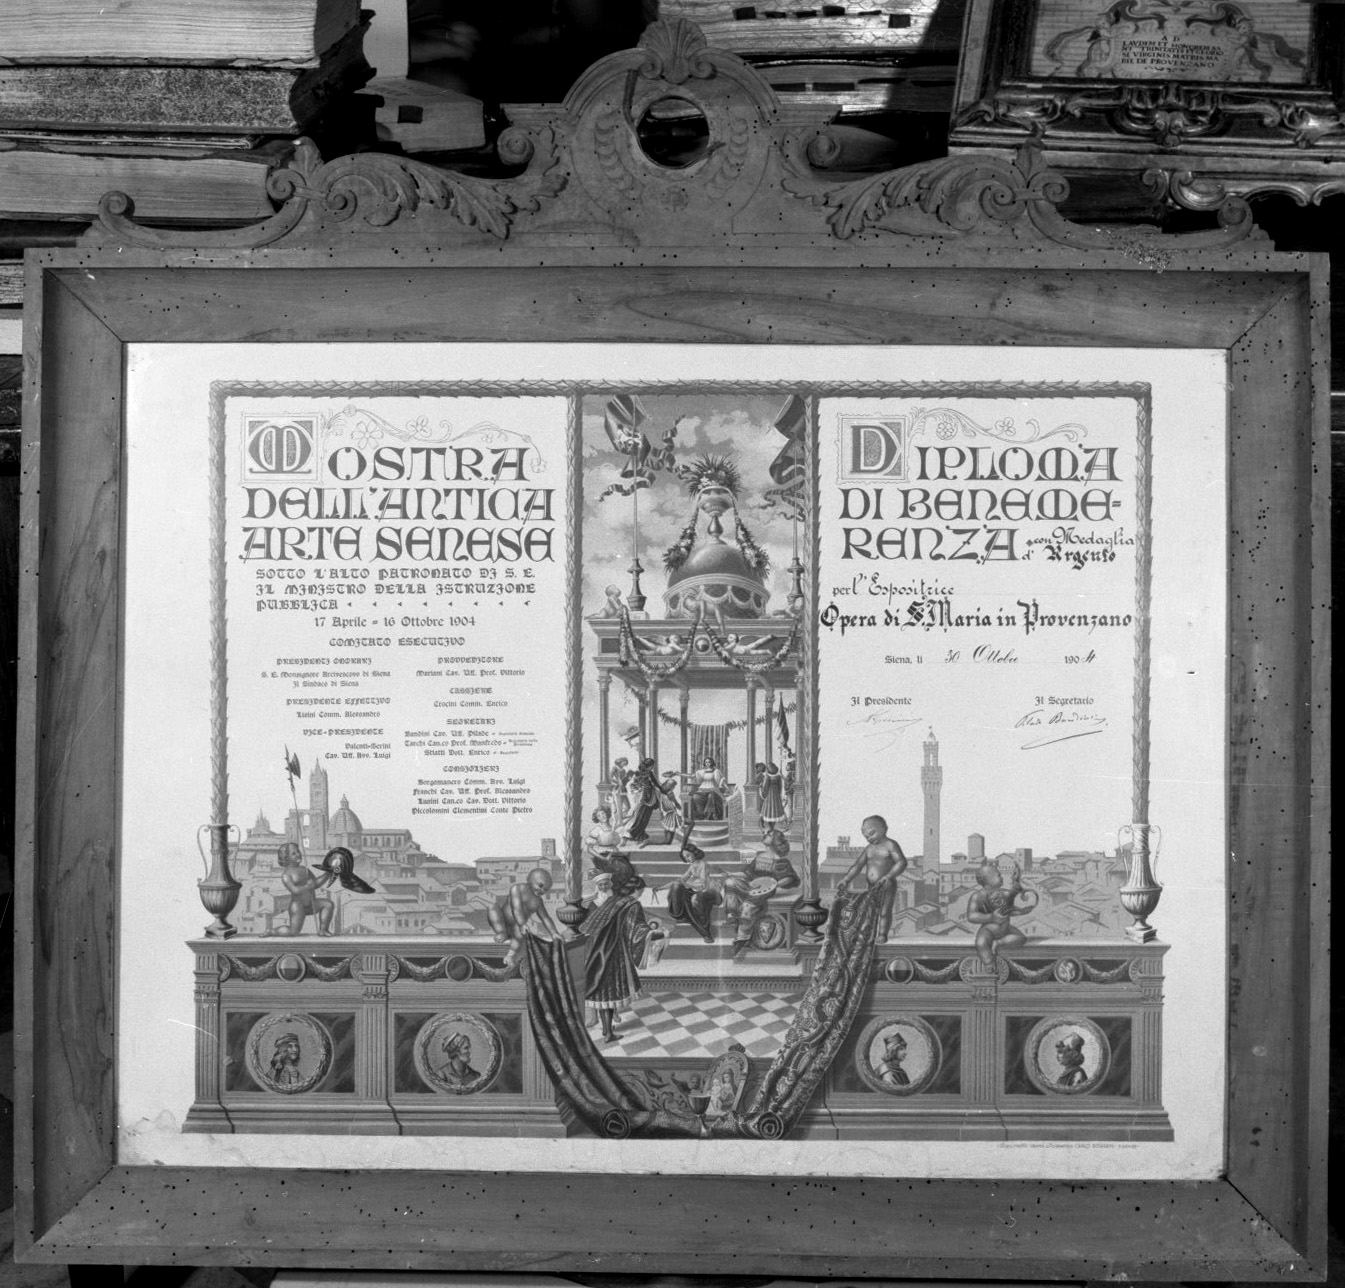 A D
LAVDEM ET HONOREM SA
NT TRINITATIS ET GLORIO
SE VIRGINIS MATRIS MA
RIE DE PROVENZANO
MOSTRA
DELL'ANTICA
ARTE SENESE
SOTTO L'ALTO PATRONATO DI S. E.
IL MINISTRO DELLA ISTRUZIONE
PUBBLICA
17 Aprile = 16 Ottobre 1904
COMITATO ESECUTIVO
PRESIDENTI ONORARI
S. E. Monsignore Arcivescovo di Siena
Il Sindaco di Siena
PRESIDENTE EFFETTIVO
Lisini Comm. Alessandro
VICE=PRESIDENTE
Valenti=Serini
Cav. Uff. Avv. Luigi
PROVVEDITORE
Mariani Cav. Uff. Prof. Vittorio
CASSIERE
Crocini Comm. Enrico
SEGRETARI
Bandini Cav. Uff. Pilade
Tarchi Can.co Prof. Manfredo
Stiatti Dott. Enrico
CONSIGLIERI
Borgomanero Comm. Avv. Luigi
Franchi Cav. Uff. Prof. Alessandro
Lusini Can.co Cav. Dott. Vittorio
Piccolomini Clementini Conte Pietro
DIPLOMA
DI BENEME=
RENZA con Medaglia
d' Argento
per l'Espositrice
Opera di S. Maria in Provenzano
Siena, li 30 Ottobre 1904
Il Presidente
Il Segretario
Pilade Bandini